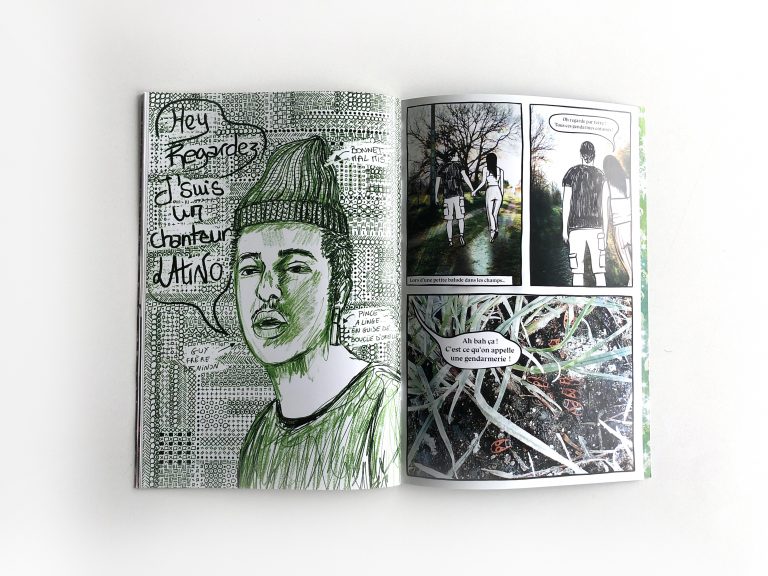 Hey
Regardez
J'suis
un
chanteur
LATINO
BONNET
MAL MIS
PINCE
A LINGE
EN GUISE DE
BOUCLE D'OREILLE
GUY
FRÈRE
NINON
Lors d'une petite balade dans les champs..
Oh regarde par terre !
Tous ces gendarmes
Ah bah ça !
C'est ce qu'on appelle
une gendarmerie !